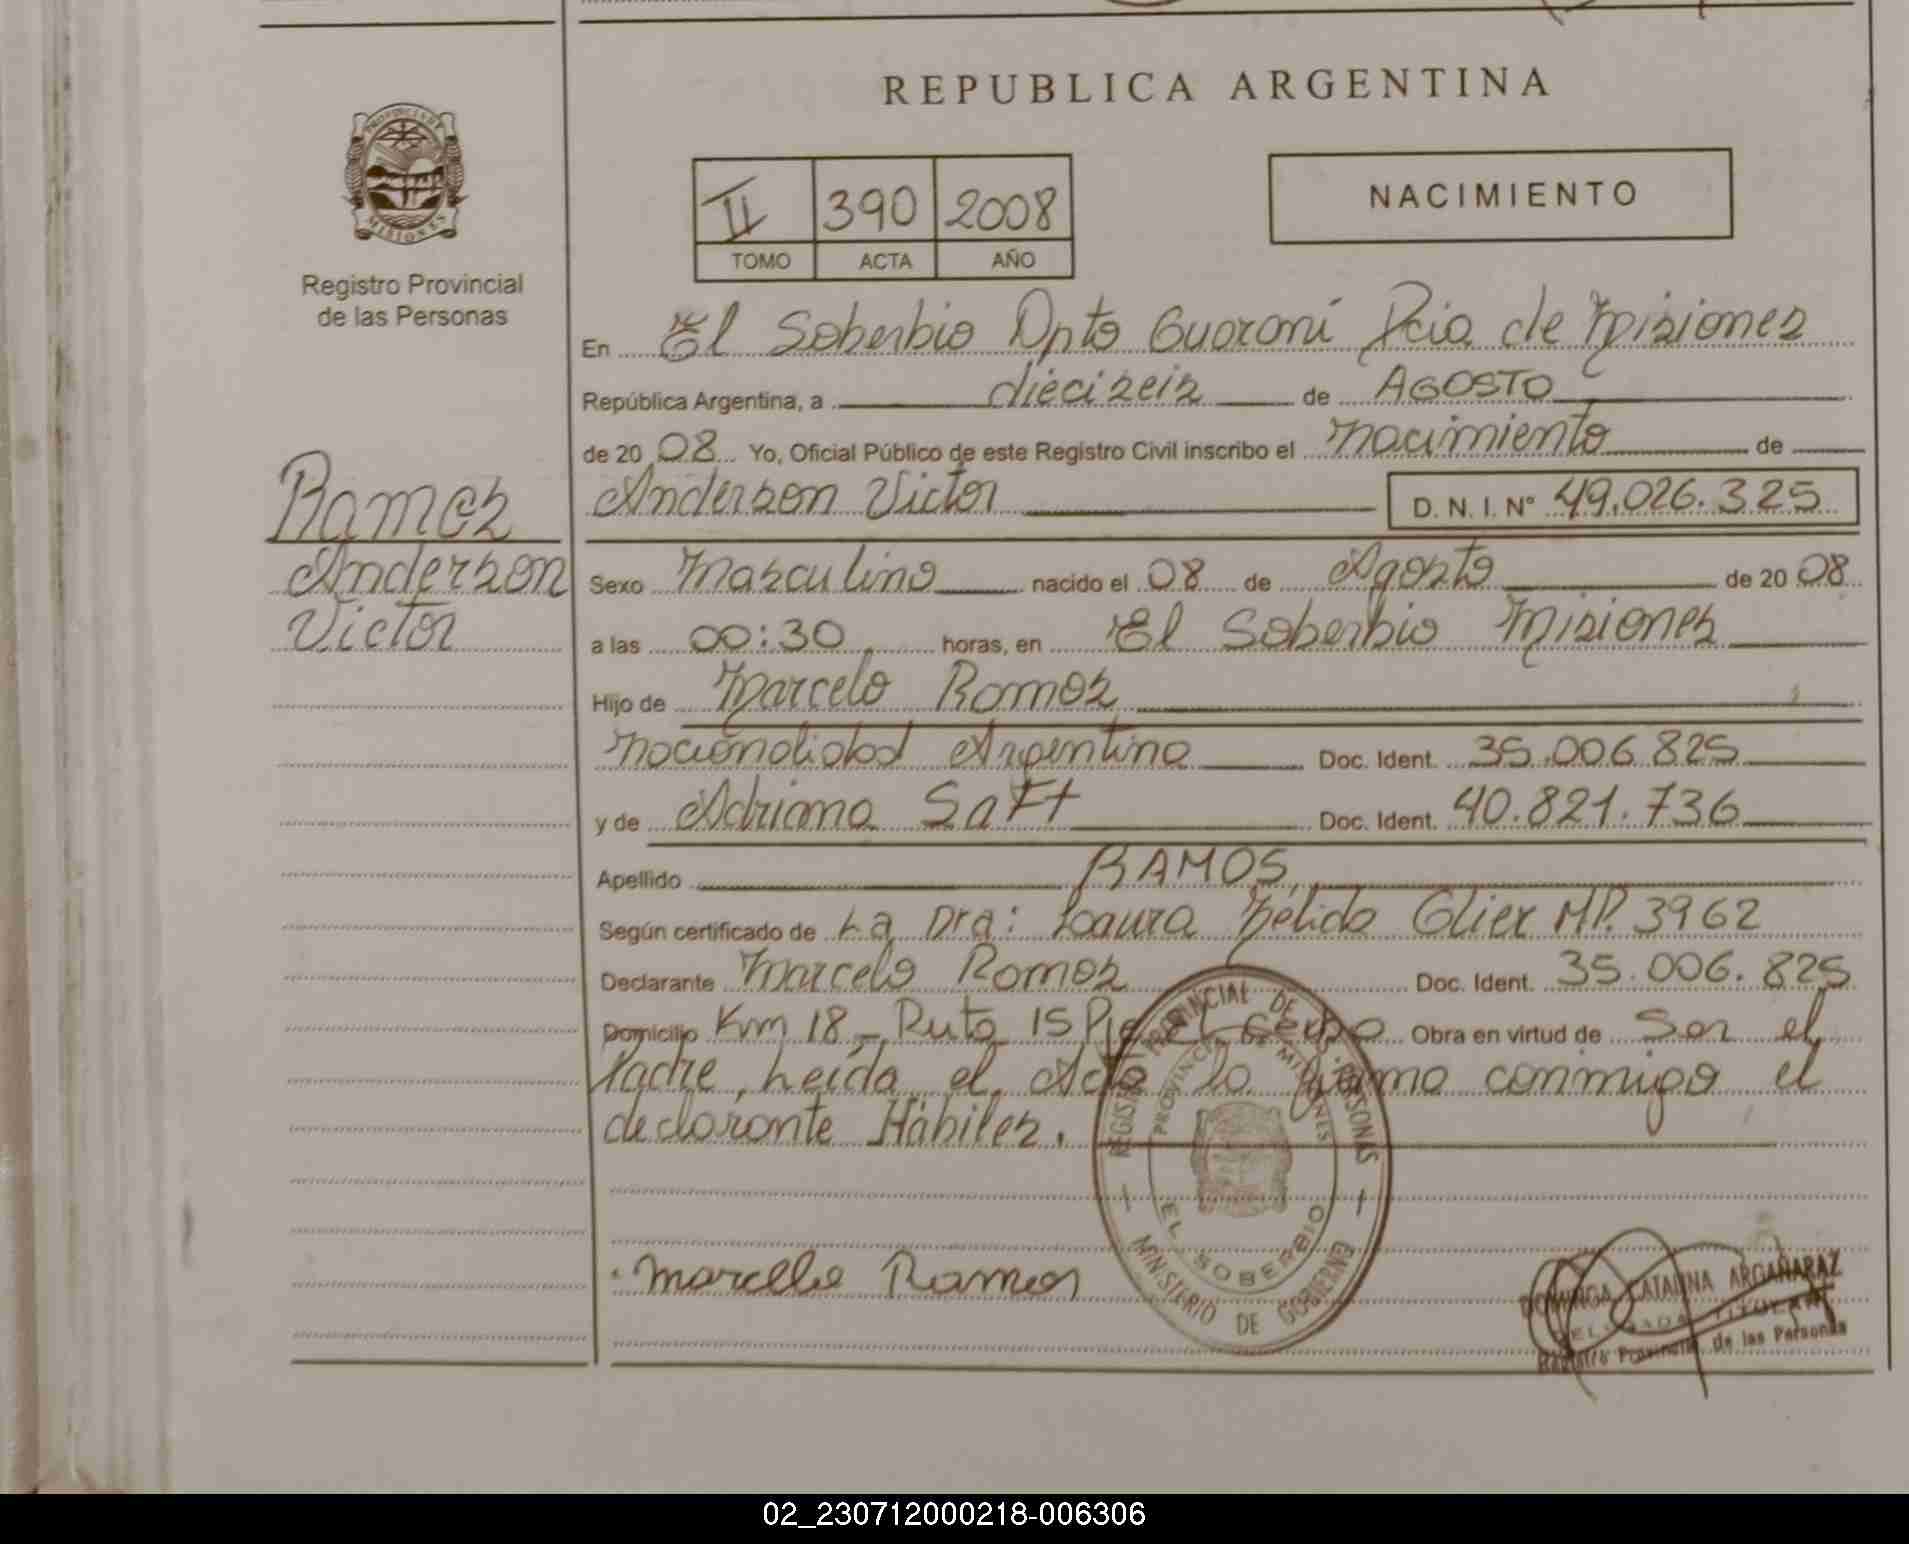 REPUBLICA ARGENTINA
PROVINCIA DE
MISIONES
Registro Provincial
de las Personas
II 390 2008
TOMO ACTA AÑO
NACIMIENTO
En El Soberbio Dpto Guaraní Pcia de Misiones
República Argentina, a dieciseis de AGOSTO
de 20 08 Yo, Oficial Público de este Registro Civil inscribo el nacimiento de
Ramos
Anderson
Victor
Anderson Victor D. N. I. N° 49.026.325
Sexo Masculino nacido el 08 de Agosto de 20 08
a las 00:30 horas, en El Soberbio Misiones
Hijo de Marcelo Ramos
nacionalidad Argentina Doc. Ident. 35.006.825
y de Adriana Saft Doc. Ident. 40.821.736
Apellido RAMOS
Según certificado de La Dra: Laura Nélida Glier MP. 3962
Declarante Marcelo Ramos Doc. Ident. 35.006.825
Domicilio Km 18 - Ruta 15 Pje Obra en virtud de Ser el
Padre, Leída el Acta la firma conmigo el
declarante Hábiles.
REGISTRO PROVINCIAL DE PERSONAS
PROVINCIA DE MISIONES
EL SOBERBIO
MINISTERIO DE GOBIERNO
Marcelo Ramos
DOMINGA CATALINA ARGAÑARAZ
DELEGADA TITULAR
Registro Provincial de las Personas
02_230712000218-006306